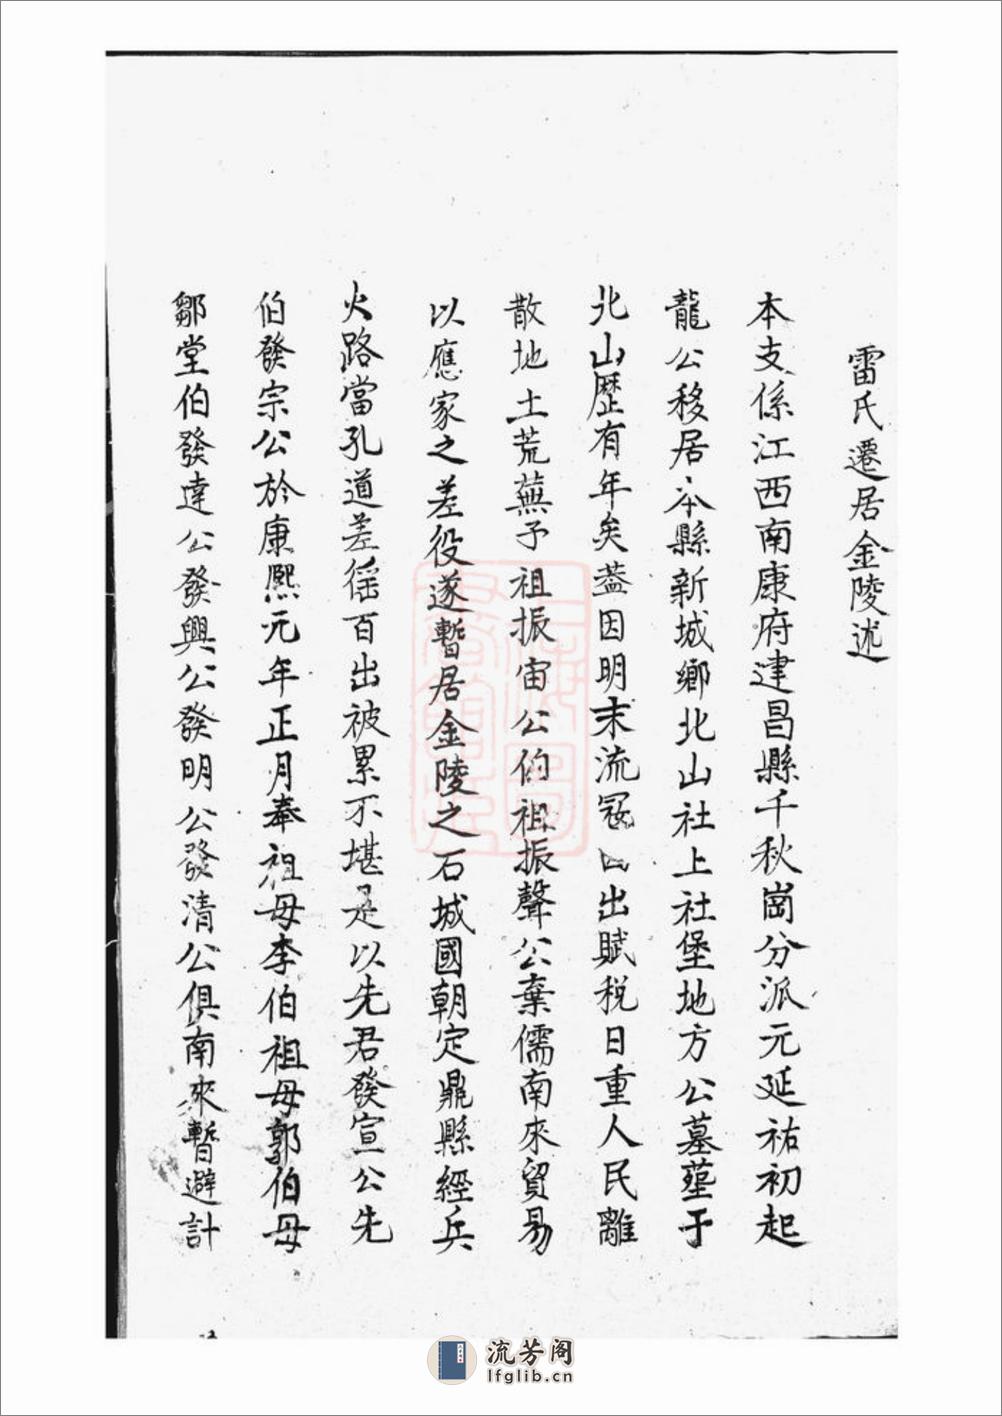 雷氏遷居金陵述
本支係江西南康府建昌縣千秋崗分派元延祐初起
龍公移居本縣新城鄉北山社上社堡地方公墓塟于
北山歷有年矣葢因明末流寇四出賦稅日重人民離
散地土荒蕪予祖振宙公伯祖振聲公棄儒南來貿易
以應家之差役遂暫居金陵之石城國朝定鼎縣經兵
火路當孔道差徭百出被累不堪是以先君發宣公先
伯發宗公於康熙元年正月奉祖母李伯祖母郭伯母
鄒堂伯發達公發興公發明公發清公俱南來暫避計
流芳阁
lfglib.cn